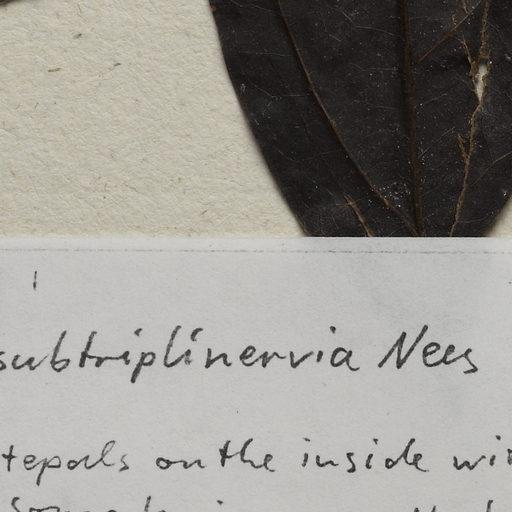 subtriplinervia Nees
tepals on the inside